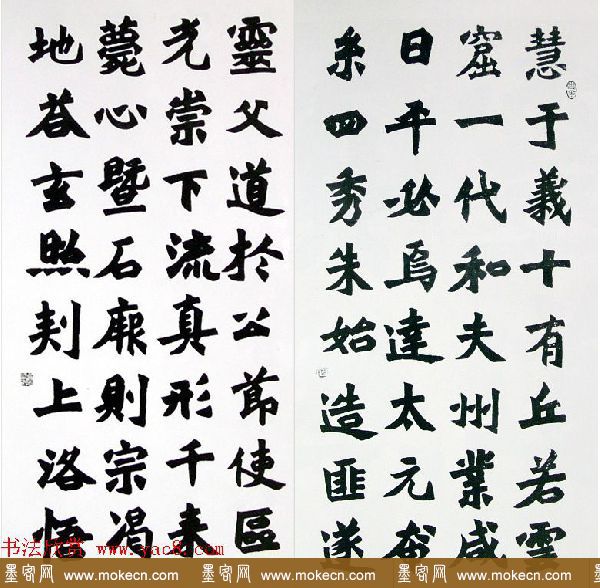 慧于義十有丘若雲
窟一代和夫州業咸
日平必達太元
四秀朱始造匪遂
靈父道於公節使區
光崇下流真形千来
薨心暨石厥則宗
地玄照上洛悟
书法欣赏 www.yac8.com
墨客网 www.mokecn.com 墨客网 www.mokecn.com 墨客网 www.mokecn.com